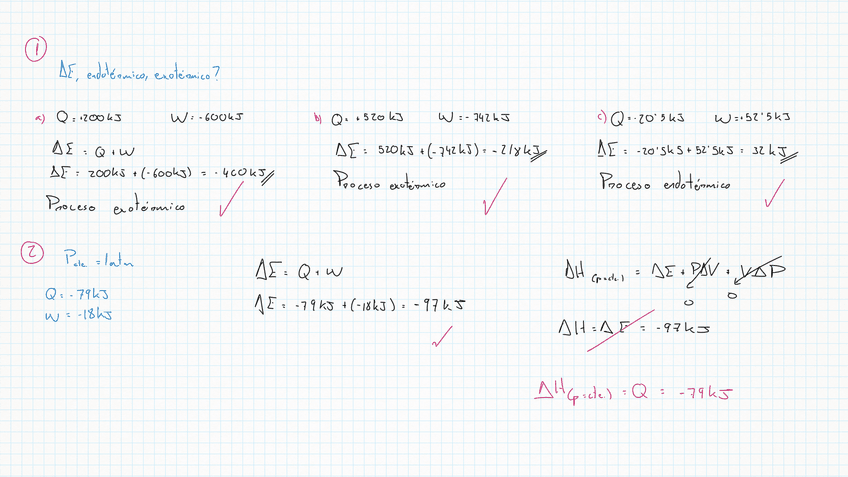 1
ΔE, endotérmico, exotérmico?
a) Q = +200kJ W = -600kJ
ΔE = Q + W
ΔE = 200kJ + (-600kJ) = -400kJ
Proceso exotérmico
b) Q = +520kJ W = -742kJ
ΔE = 520kJ + (-742kJ) = -218kJ
Proceso exotérmico
c) Q = -20'5kJ W = +52'5kJ
ΔE = -20'5kJ + 52'5kJ = 32kJ
Proceso endotérmico
2
Pcte = 1atm
Q = -79kJ
W = -18kJ
ΔE = Q + W
ΔE = -79kJ + (-18kJ) = -97kJ
ΔH (p=cte.) = ΔE + PΔV + VΔP
0 0
ΔH = ΔE = -97kJ
ΔH (p=cte.) = Q = -79kJ